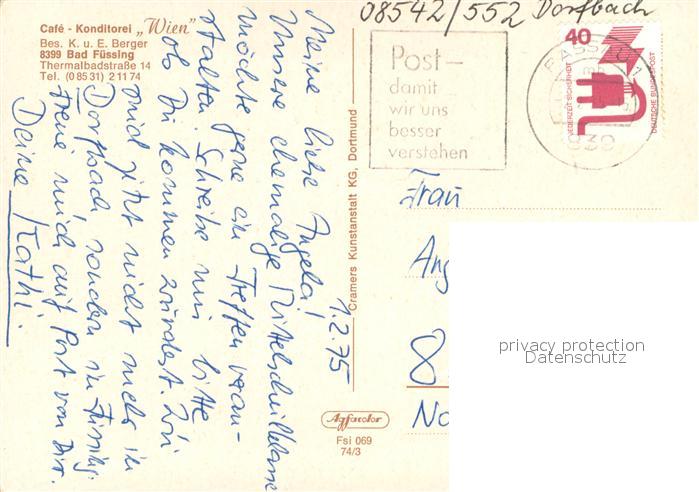 Café - Konditorei „Wien"
Bes. K. u. E. Berger
8399 Bad Füssing
Thermalbadstraße 14
Tel. (0 85 31) 2 11 74
08542/552 Dorfbach
Post –
damit
wir uns
besser
verstehen
40
JEDERZEIT SICHERHEIT
DEUTSCHE BUNDESPOST
PASSAU 1
839
1.2.75
Meine liebe Angela!
Unsere ehemalige Mittelschulklasse
möchte gerne ein Treffen veran-
stalten. Schreibe mir bitte
ob Du kommen würdest. Wir
sind jetzt nicht mehr in
Dorfbach sondern in Füssing.
Freue mich auf Post von Dir.
Deine Kathi.
Cramers Kunstanstalt KG, Dortmund
Agfacolor
Fsi 069
74/3
Frau
Ang
8
No
privacy protection
Datenschutz